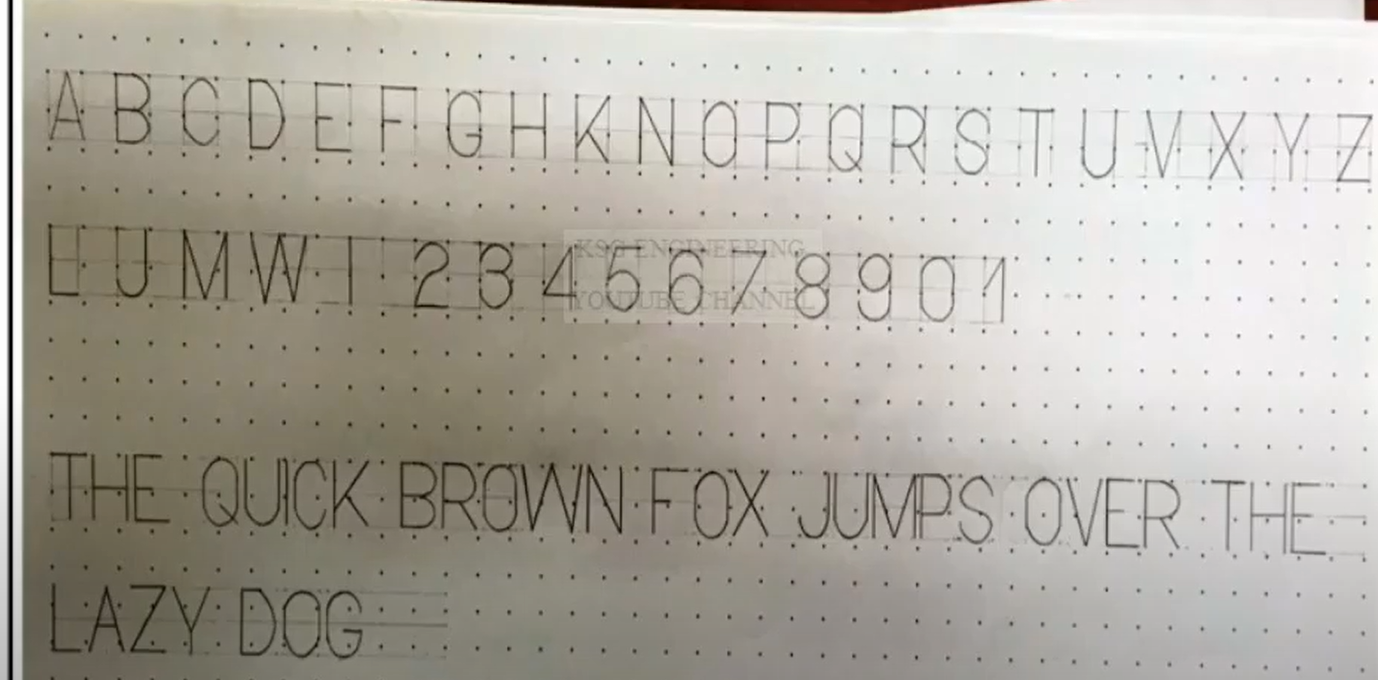 A B C D E F G H K N O P Q R S T U V X Y Z
L J M W I 2 3 4 5 6 7 8 9 0 1
KSG ENGINEERING
YOUTUBE CHANNEL
THE QUICK BROWN FOX JUMPS OVER THE
LAZY DOG